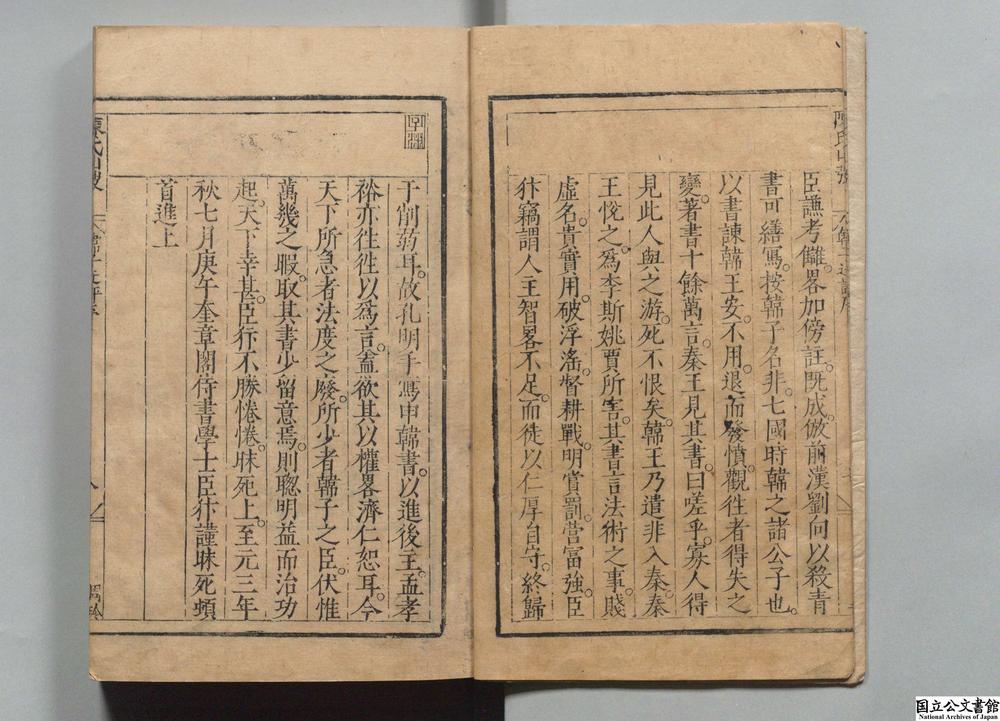 臣謙考讎畧加傍註旣成倣前漢劉向以殺青
書可繕寫按韓子名非七國時韓之諸公子也
以書諫韓王安不用退而發憤觀徃者得失之
變著書十餘萬言秦王見其書曰嗟乎寡人得
見此人與之游死不恨矣韓王乃遣非入秦秦
王悅之爲李斯姚賈所害其書言法術之事賤
虛名貴實用破浮滛督耕戰明賞罰營富強臣
犿竊謂人主智畧不足而徒以仁厚自守終歸
于削弱耳故孔明手寫申韓書以進後主孟孝
裕亦徃徃以爲言葢欲其以權畧濟仁恕耳今
天下所急者法度之廢所少者韓子之臣伏惟
萬幾之暇取其書少留意焉則聰明益而治功
起天下幸甚臣犿不勝惓惓昧死上至元三年
秋七月庚午奎章閣侍書學士臣犿謹昧死頓
首進上
陳氏
八
国立公文書館
National Archives of Japan